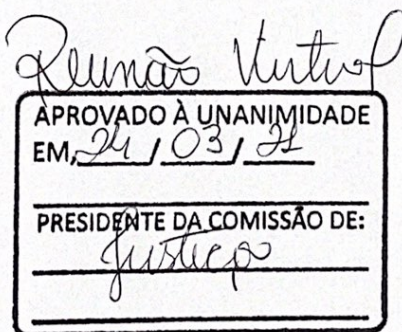 Reunião Virtual
APROVADO À UNANIMIDADE
EM, 24 / 03 / 21
PRESIDENTE DA COMISSÃO DE:
Justiça